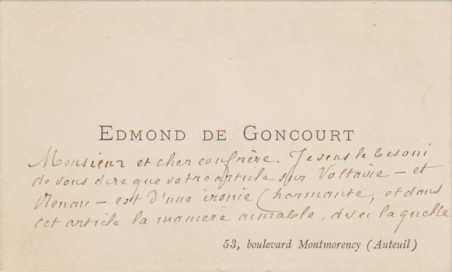 EDMOND DE GONCOURT
Monsieur et cher confrère. Je sens le besoin
de vous dire que votre article sur Voltaire – et
Renan – est d'une ironie charmante, et dans
cet article la manière aimable, avec laquelle
53, boulevard Montmorency (Auteuil)